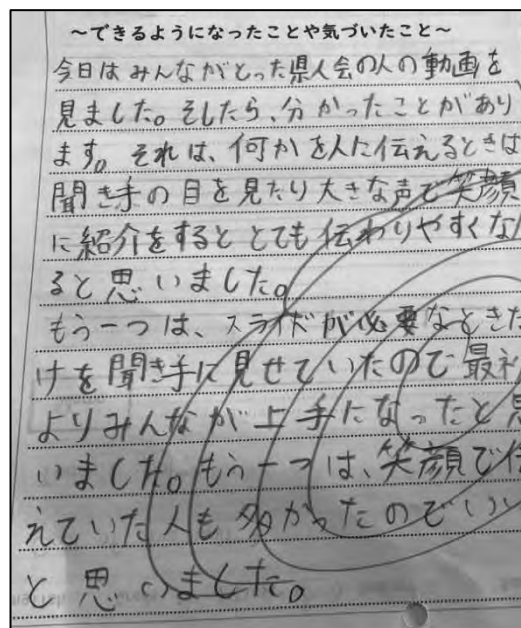 ～できるようになったことや気づいたこと～
今日はみんながとった県人会の人の動画を
見ました。そしたら、分かったことがあり
ます。それは、何かを人に伝えるときは
聞き手の目を見たり大きな声で笑顔
に紹介をするととても伝わりやすくな
ると思いました。
もう一つは、スライドが必要なときだ
けを聞き手に見せていたので最初
よりみんなが上手になったと思
いました。もう一つは、笑顔で伝
えていた人も多かったのでいい
と思いました。